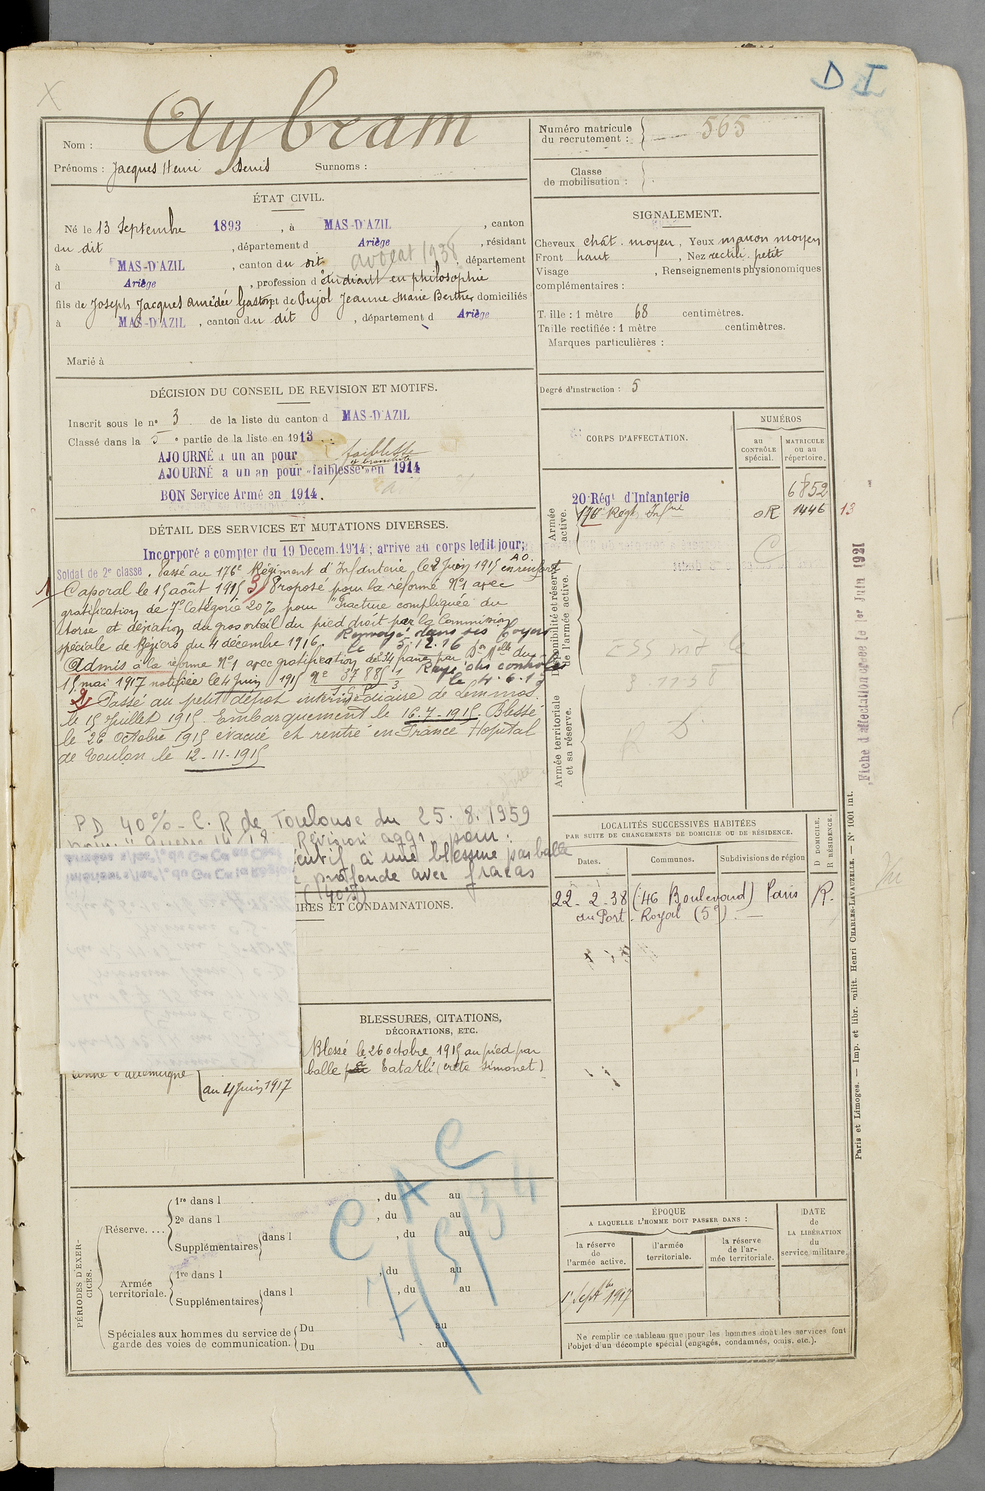 D I
Nom : Aybram
Prénoms : Jacques Henri Denis Surnoms :
Numéro matricule du recrutement : 565
Classe de mobilisation :
ÉTAT CIVIL.
Né le 13 Septembre 1893, à MAS-D'AZIL, canton
du dit, département d Ariège, résidant
à MAS-D'AZIL, canton du dit, département
avocat 1938
d Ariège, profession d'étudiant en philosophie
fils de Joseph Jacques Amédée Gaston et de Pujol Jeanne Marie Berthe domiciliés
à MAS-D'AZIL, canton du dit, département d Ariège
Marié à
SIGNALEMENT.
Cheveux chât. moyen, Yeux marron moyen
Front haut, Nez rectili. petit
Visage , Renseignements physionomiques
complémentaires :
Taille : 1 mètre 68 centimètres.
Taille rectifiée : 1 mètre centimètres.
Marques particulières :
Degré d'instruction : 5
DÉCISION DU CONSEIL DE REVISION ET MOTIFS.
Inscrit sous le n° 3 de la liste du canton d MAS-D'AZIL
Classé dans la 5e partie de la liste en 1913.
AJOURNÉ à un an pour faiblesse
AJOURNÉ à un an pour faiblesse en 1914
BON Service Armé en 1914.
DÉTAIL DES SERVICES ET MUTATIONS DIVERSES.
Incorporé à compter du 19 Decem. 1914 ; arrivé au corps ledit jour;
Soldat de 2e classe. Passé au 176e Régiment d'Infanterie le 2 Juin 1915 en renfort A.O.
1 Caporal le 15 août 1915 3) Proposé pour la réforme N°1 avec
gratification de 7e Catégorie 20% pour "Fracture compliquée du
tarse et déviation du gros orteil du pied droit par la Commission
spéciale de Béziers du 4 décembre 1916. Renvoyé dans ses foyers
le 5.12.16
Admis à la réforme N°1 avec gratification de par Don Mlle du
15 mai 1917 notifiée le 4 juin 1915 N° 3788 Rayé des contrôles
le 4.6.17
2) Passé au petit dépôt intermédiaire de Lemnos
le 15 Juillet 1915. Embarquement le 16.7.1915. Blessé
le 26 octobre 1915 évacué et rentré en France Hôpital
de Toulon le 12-11-1915
PD 40% - C. R de Toulouse du 25.8.1959
Révision agg. pour :
à une blessure par balle
profonde avec fracas
(40%)
CORPS D'AFFECTATION.
NUMÉROS
au contrôle spécial.
matricule ou au répertoire.
Armée active.
20 Régt d'Infanterie 6852
176e Régt Infrie oR 1446 13
Disponibilité et réserve de l'armée active.
Armée territoriale et sa réserve.
Fiche d'affectation créée le 1er Juin 1921
LOCALITÉS SUCCESSIVES HABITÉES
PAR SUITE DE CHANGEMENTS DE DOMICILE OU DE RÉSIDENCE.
Dates. Communes. Subdivisions de région
D DOMICILE, R RÉSIDENCE.
22-2-38 (46 Boulevard) Paris R.
du Port-Royal (5e)
IRES ET CONDAMNATIONS.
BLESSURES, CITATIONS,
DÉCORATIONS, ETC.
Blessé le 26 octobre 1915 au pied par
balle Tatarli (crête Simonet)
au 4 Juin 1917
C A C
7/5/34
PÉRIODES D'EXERCICES.
Réserve....
1re dans l , du au
2e dans l , du au
Supplémentaires dans l , du au
Armée territoriale.
1re dans l , du au
Supplémentaires dans l , du au
Spéciales aux hommes du service de garde des voies de communication.
Du au
Du au
ÉPOQUE
A LAQUELLE L'HOMME DOIT PASSER DANS :
la réserve de l'armée active.
l'armée territoriale.
la réserve de l'armée territoriale.
DATE DE LA LIBÉRATION du service militaire.
1er Septbre 1917
Ne remplir ce tableau que pour les hommes dont les services font
l'objet d'un décompte spécial (engagés, condamnés, omis, etc.).
Paris et Limoges. — Imp. et libr. milit. Henri CHARLES-LAVAUZELLE. — N° 1001 int.